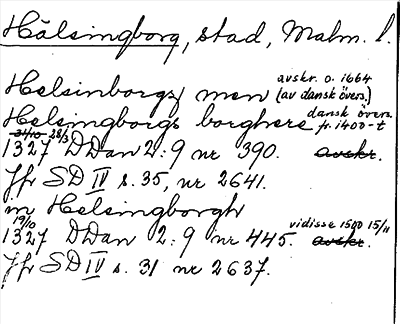 Hälsingborg, stad, Malm. l.
Helsinborgs men avskr. o. 1664 (av dansk övers.)
Helsingborgs borghere dansk övers. fr. 1400-t
31/10 28/3
1327 DDan 2:9 nr 390. avskr.
Jfr SD IV s. 35, nr 2641.
in Helsingborgh
19/10
1327 DDan 2:9 nr 445. avskr. vidisse 1500 15/11
Jfr SD IV s. 31 nr 2637.